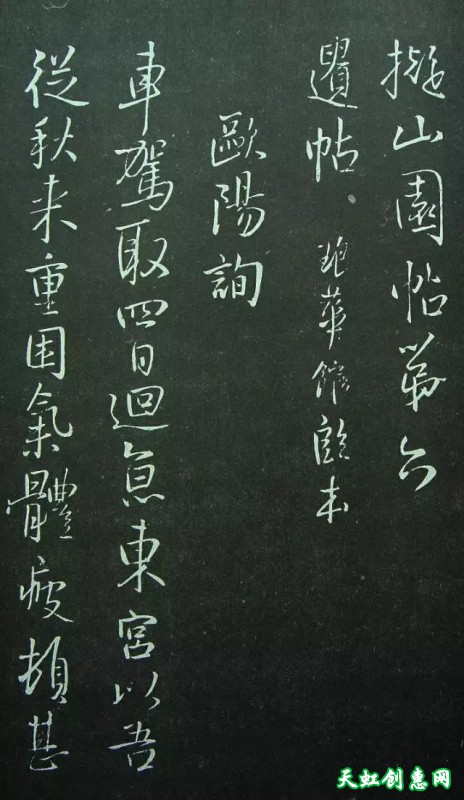 擬山園帖第六
帖、琅華館臨本
歐陽詢
車駕取四日迴息東宮以吾
從秋来重困氣體疲頓甚
天虹创惠网